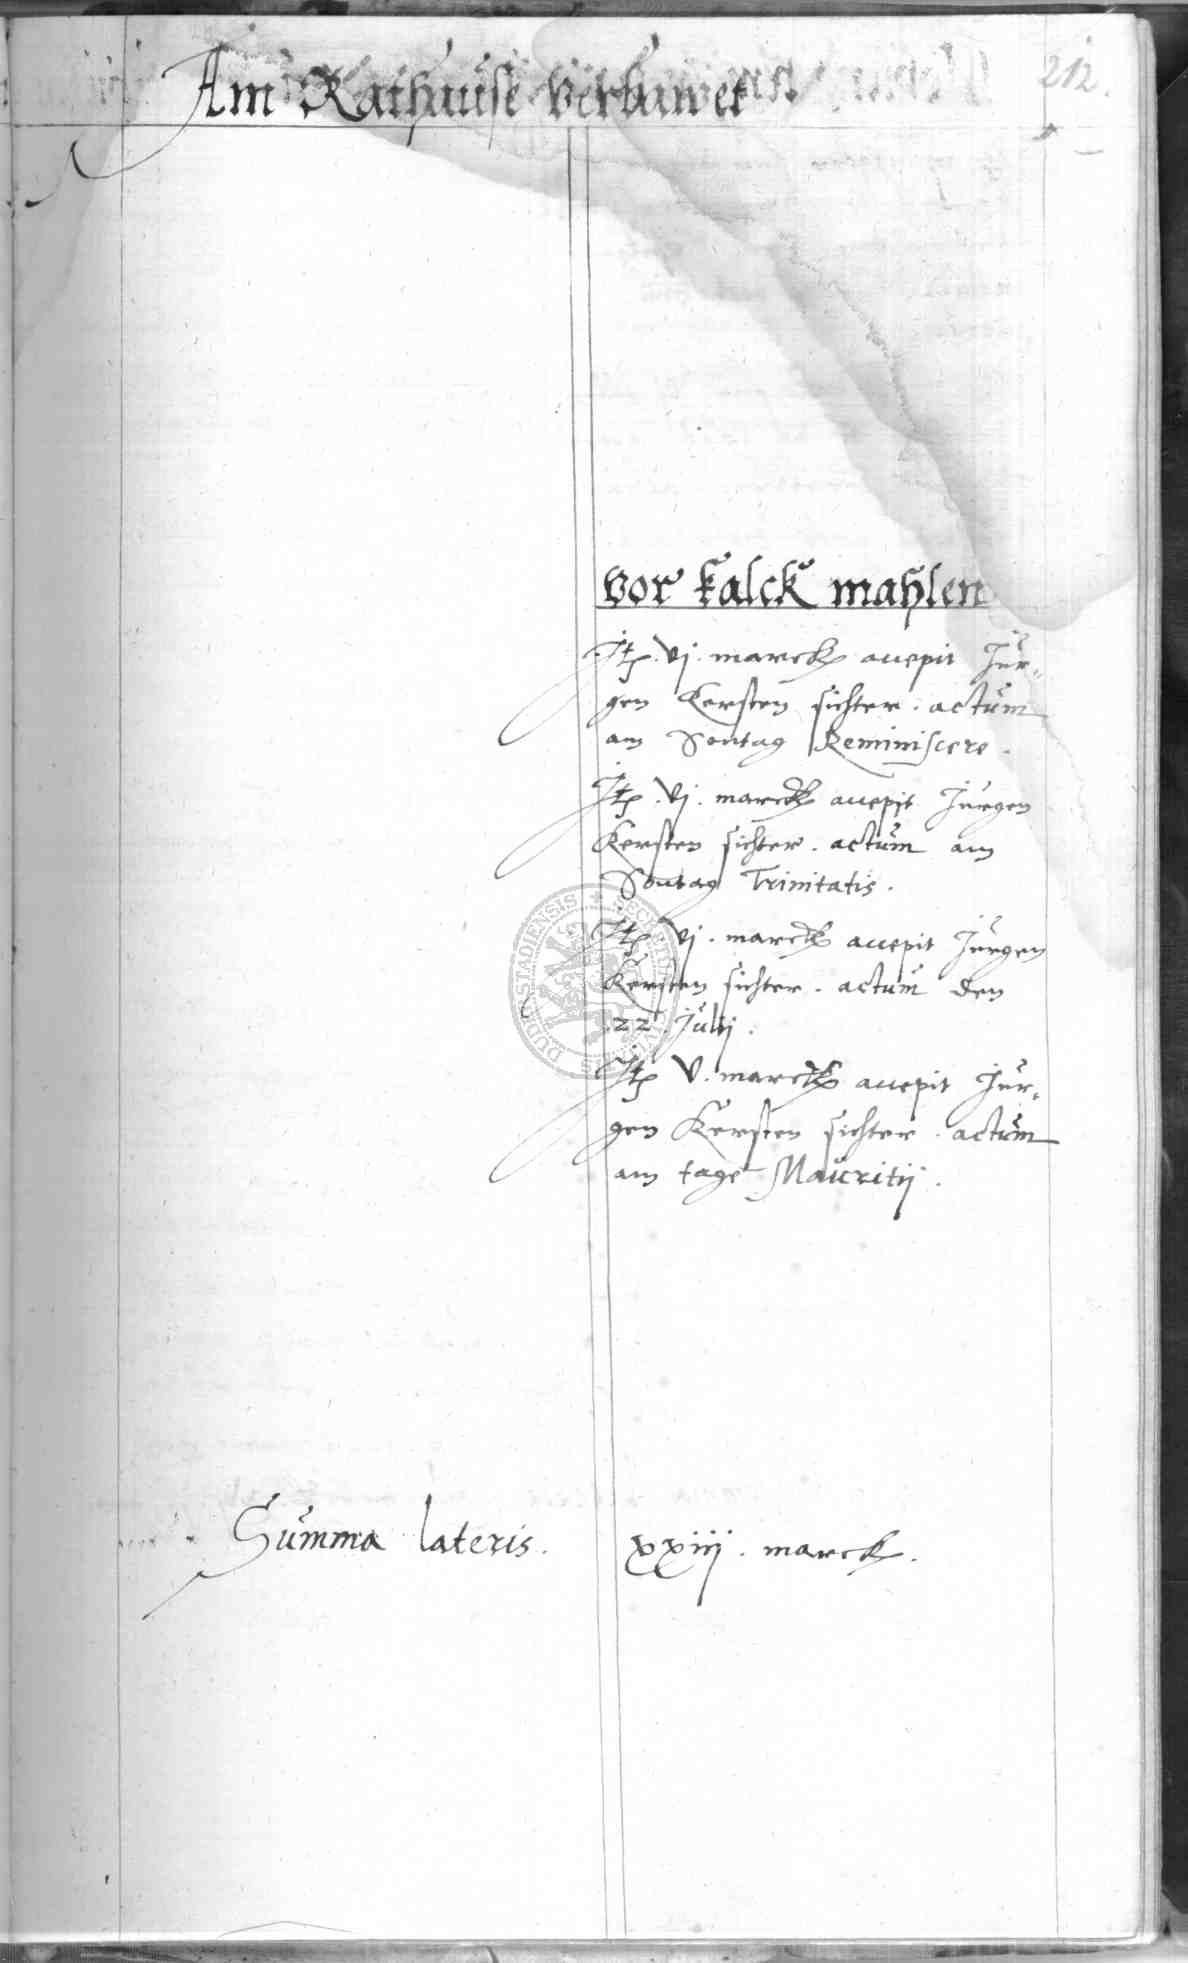 212.
Am Rathause verbawet
vor kalck mahlen
Itꝫ . vj . marck accepit Jür-
gen Kersten sichter . actum
am Sontag Reminiscere .
Itꝫ . vj . marck accepit Jürgen
Kersten sichter . actum am
Sontag Trinitatis .
Itꝫ vj . marck accepit Jürgen
Kersten sichter . actum den
.22. Julij .
Itꝫ v . marck accepit Jür-
gen Kersten sichter . actum
am tage Mauritij .
Summa lateris . xxiij . marck .